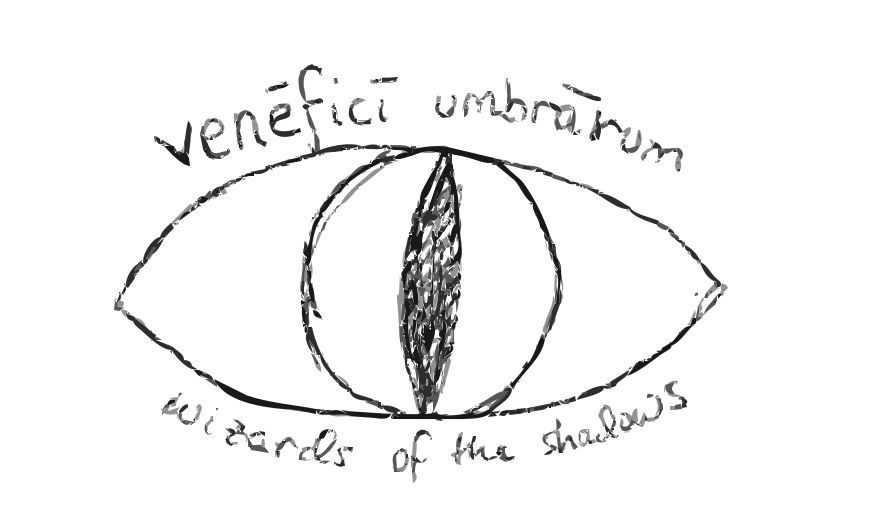 venēficī umbrārum
wizards of the shadows